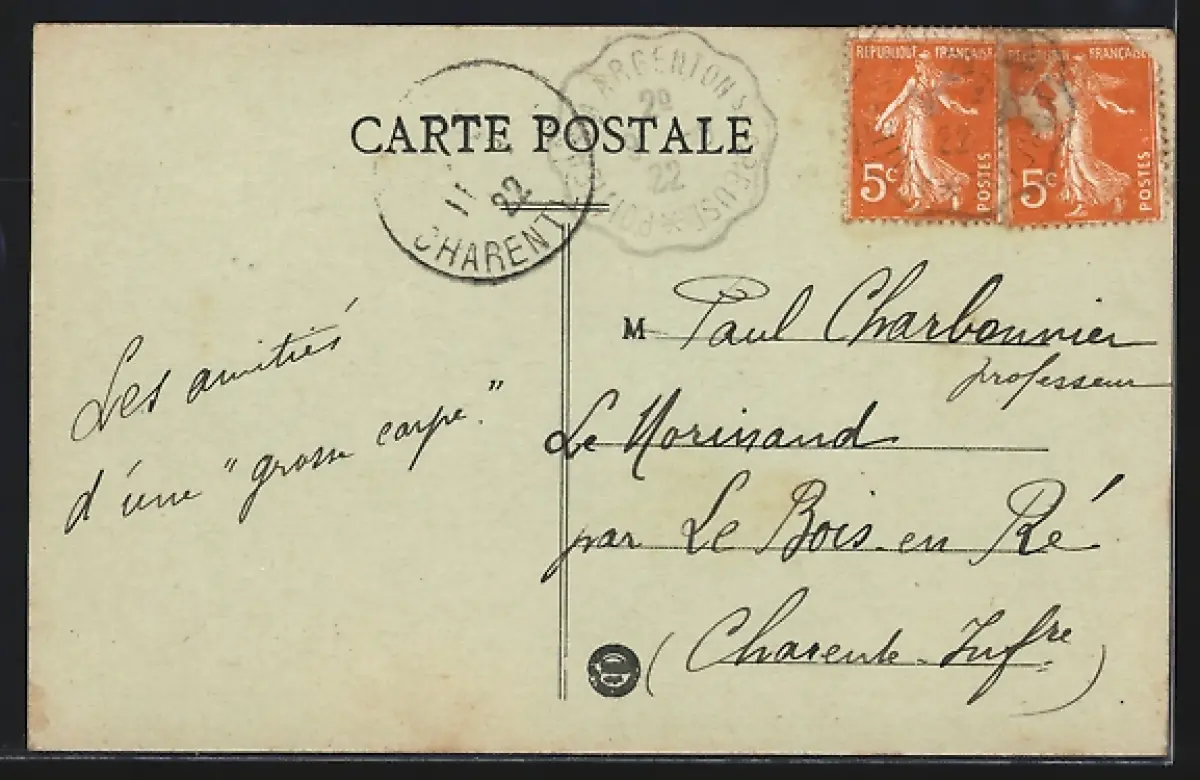 CARTE POSTALE
REPUBLIQUE FRANÇAISE
5c POSTES
REPUBLIQUE FRANÇAISE
5c POSTES
ARGENTON S CREUSE * POI
29
22
11 22
CHARENTE
Les amitiés
d'une "grosse carpe."
M Paul Charbonnier
professeur
Le Morinand
par Le Bois-en Ré
(Charente-Infre)